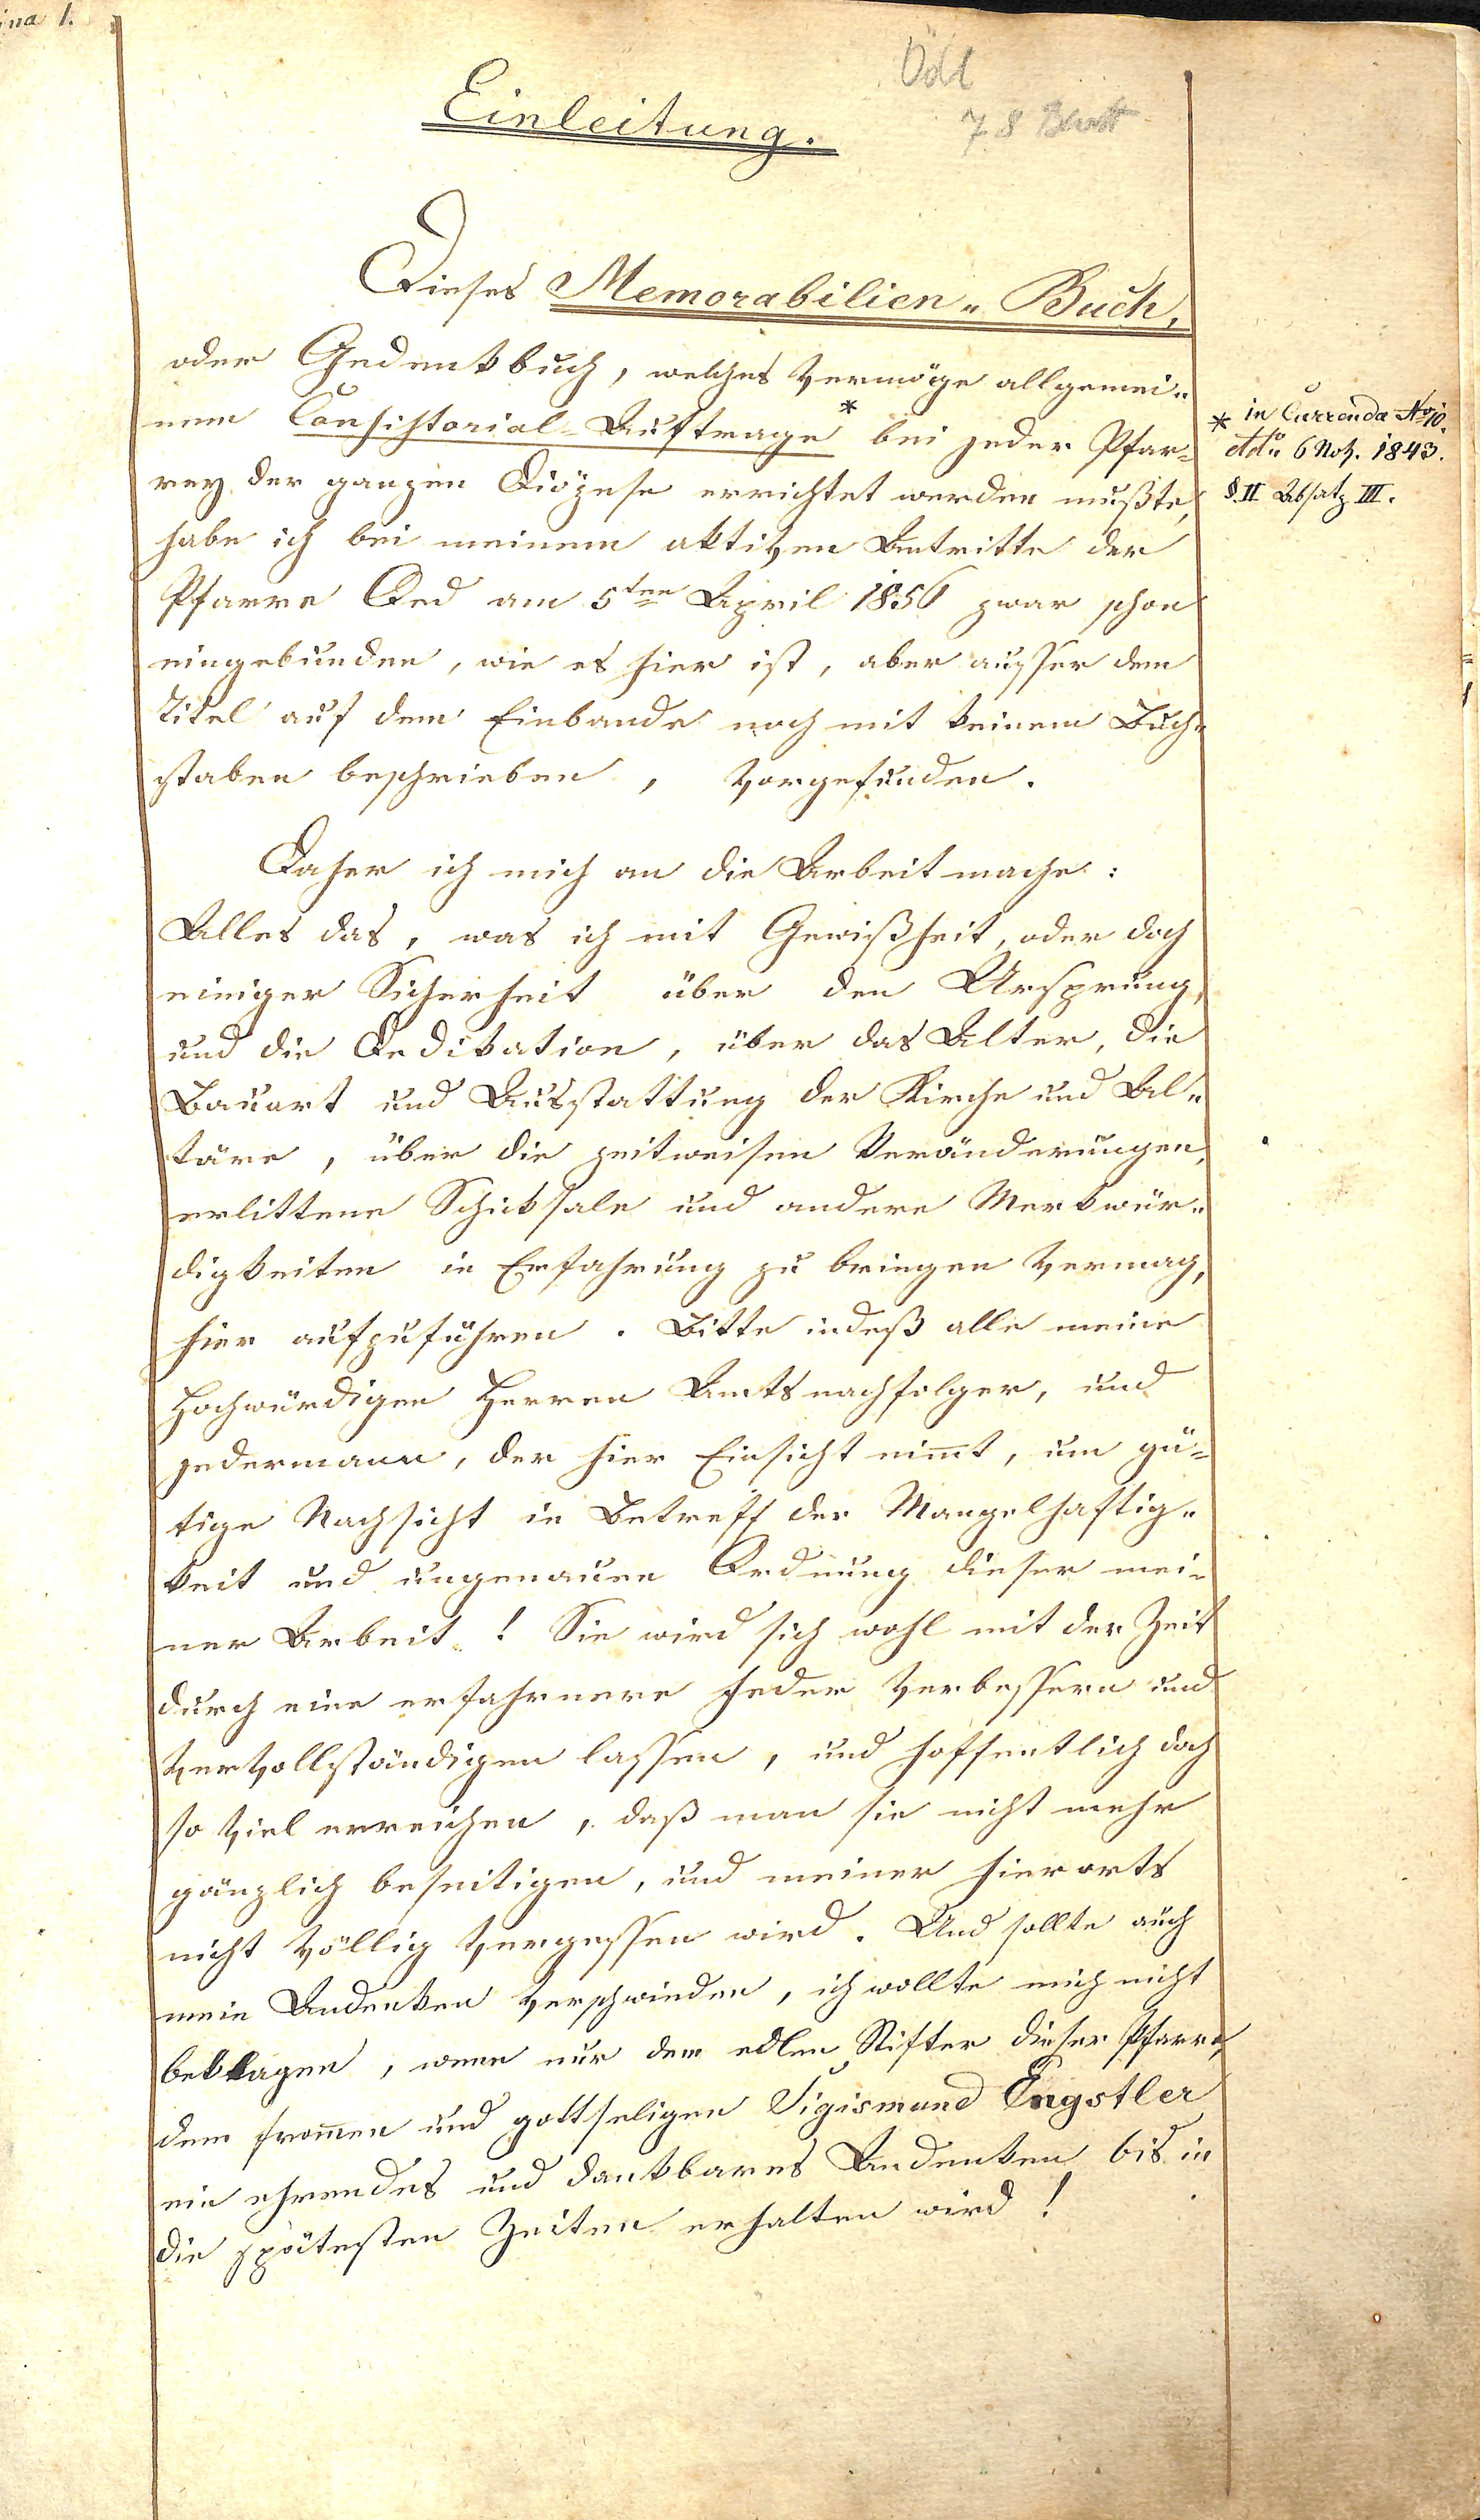 ina 1.
Öd
78 Blatt
Einleitung.
Dieses Memorabilien„Buch,
oder Gedenkbuch, welches vermöge allgemei„
nem Consistorial-Auftrage * bei jeder Pfar-
rey der ganzen Diözese errichtet werden mußte,
habe ich bei meinem aktiven Antritte der
Pfarre Oed am 5ten April 1856 zwar schon
eingebunden, wie es hier ist, aber ausser dem
Titel auf dem Einbande noch mit keinem Buch„
staben beschrieben, vorgefunden.
* in Currenda Nro 10.
ddo 6 Nov. 1843.
§. II Absatz III.
Daher ich mich an die Arbeit mache:
Alles das, was ich mit Gewißheit, oder doch
einiger Sicherheit über den Ursprung,
und die Dedikation, über das Alter, die
Bauart und Ausstattung der Kirche und Al„
täre, über die zeitweisen Veränderungen,
erlittene Schiksale und andere Merkwür„
digkeiten in Erfahrung zu bringen vermag,
hier aufzuführen. Bitte indeß alle meine
Hochwürdigen Herren Amtsnachfolger, und
jedermann, der hier Einsicht nim̅t, um gü-
tige Nachsicht in Betreff der Mangelhaftig„
keit und ungenauen Ordnung dieser mei-
ner Arbeit! Sie wird sich wohl mit der Zeit
durch eine erfahrnere Feder verbessern und
vervollständigen lassen, und hoffentlich doch
so viel erreichen, daß man sie nicht mehr
gänzlich beseitigen, und meiner hierorts
nicht völlig vergessen wird. Und sollte auch
mein Andenken verschwinden, ich wollte mich nicht
beklagen, wenn nur dem edlen Stifter dieser Pfarre,
dem from̅en und gottseligen Sigismund Engstler
ein ehrendes und dankbares Andenken bis in
die spätesten Zeiten erhalten wird!